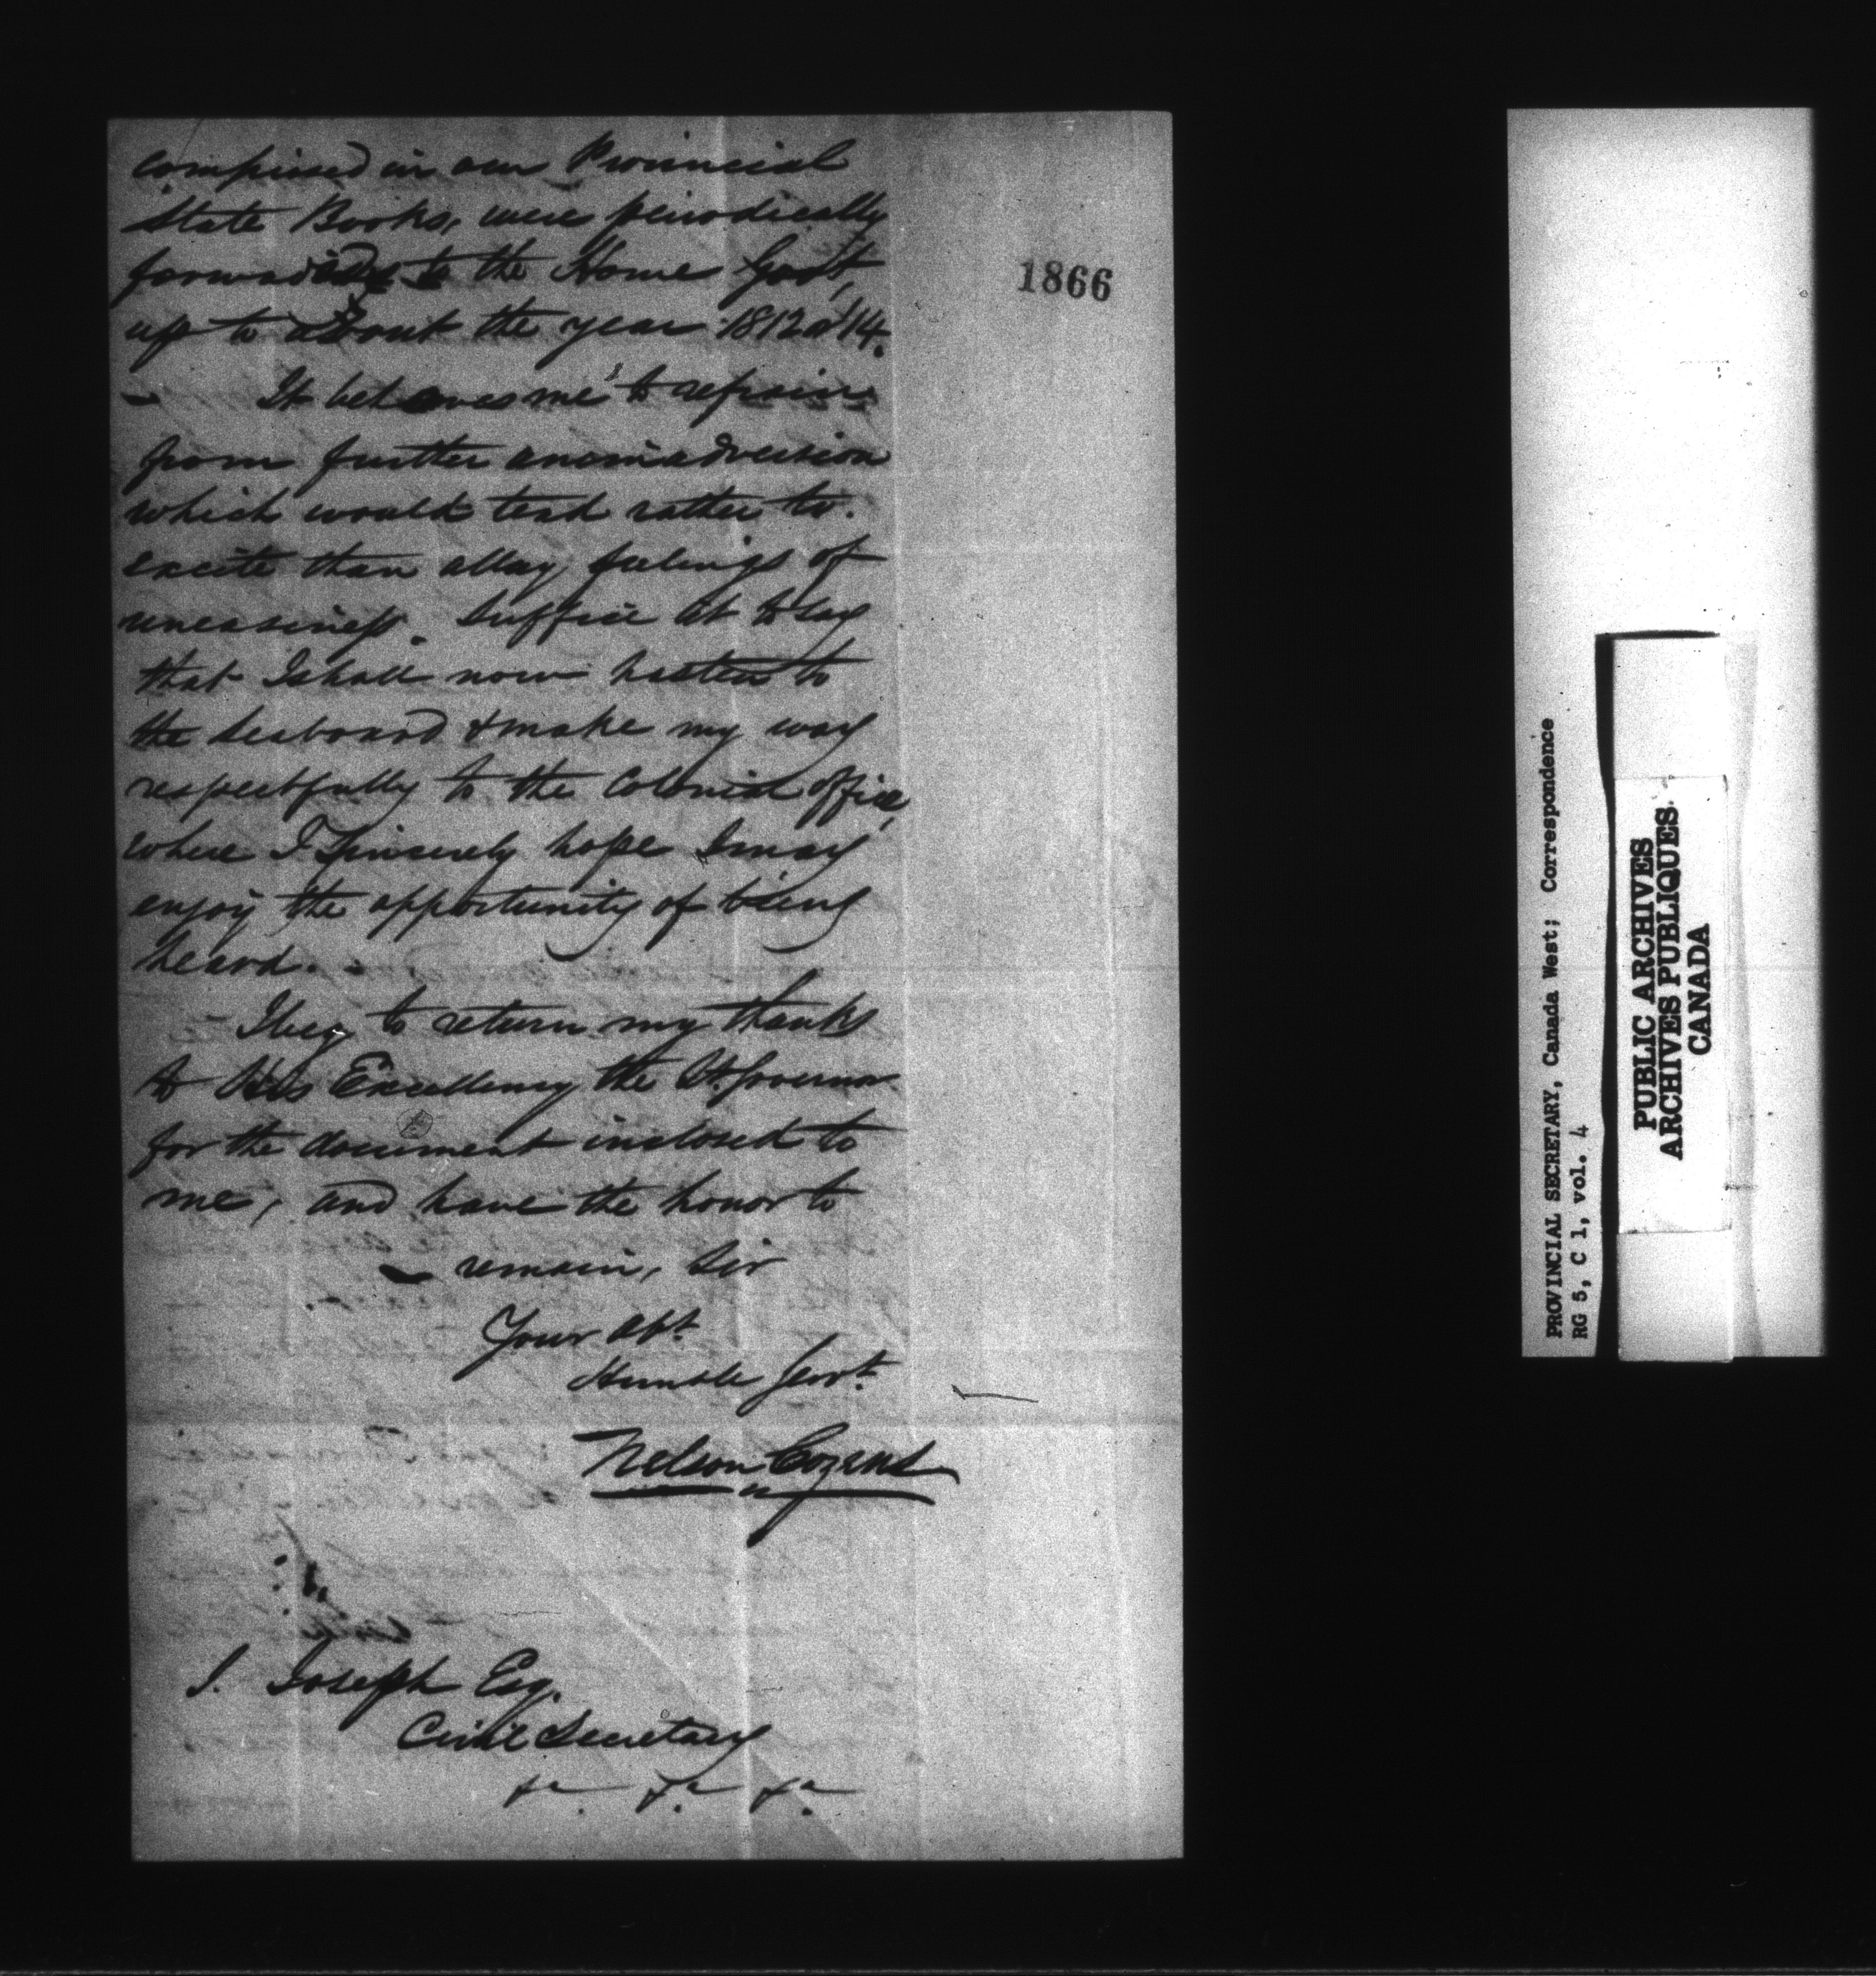 comprised in our Provincial
State Books, were periodically
forwarded to the Home Govt,
up to about the year 1812 a '14.
It behooves me to refrain
from further animadversion
which would tend rather to.
excite than allay feelings of
uneasiness. Suffice it to say
that I shall now hasten to
the seaboard & make my way
respectfully to the Colonial Office,
where I sincerely hope I may
enjoy the opportunity of being
heard. -
- I beg to return my thanks
to His Excellency the Lt. Governor
for the document inclosed to
me, and have the honor to
remain, Sir
Your Obt
Humble Servt.
Nelson Cozens
J. Joseph Esq.
Civil Secretary
&c. &c. &c.
1866
PROVINCIAL SECRETARY, Canada West; Correspondence
RG 5, C 1, vol. 4
PUBLIC ARCHIVES
ARCHIVES PUBLIQUES
CANADA